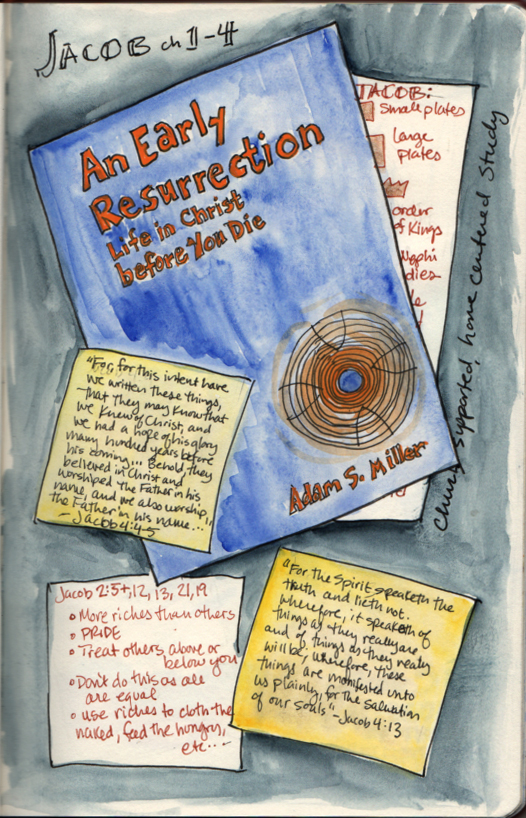 JACOB ch 1-4
An Early
Resurrection
Life in Christ
before You Die
Adam S. Miller
JACOB:
Small plates
large
plates
order
of Kings
Nephi
dies
Church supported, home centered study
"For, for this intent have
we written these things,
that they may know that
we knew of Christ, and
we had a hope of his glory
many hundred years before
his coming... Behold, they
believed in Christ and
worshiped the Father in his
name, and we also worship
the Father in his name..."
- Jacob 4:4-5
Jacob 2:5+, 12, 13, 21, 19
• More riches than others
• PRIDE
• Treat others above or
below you
• Don't do this as all
are equal
• use riches to clothe the
naked, feed the hungry,
etc...
"For the Spirit speaketh the
truth and lieth not.
Wherefore, it speaketh of
things as they really are
and of things as they really
will be; wherefore, these
things are manifested unto
us plainly, for the salvation
of our souls" - Jacob 4:13